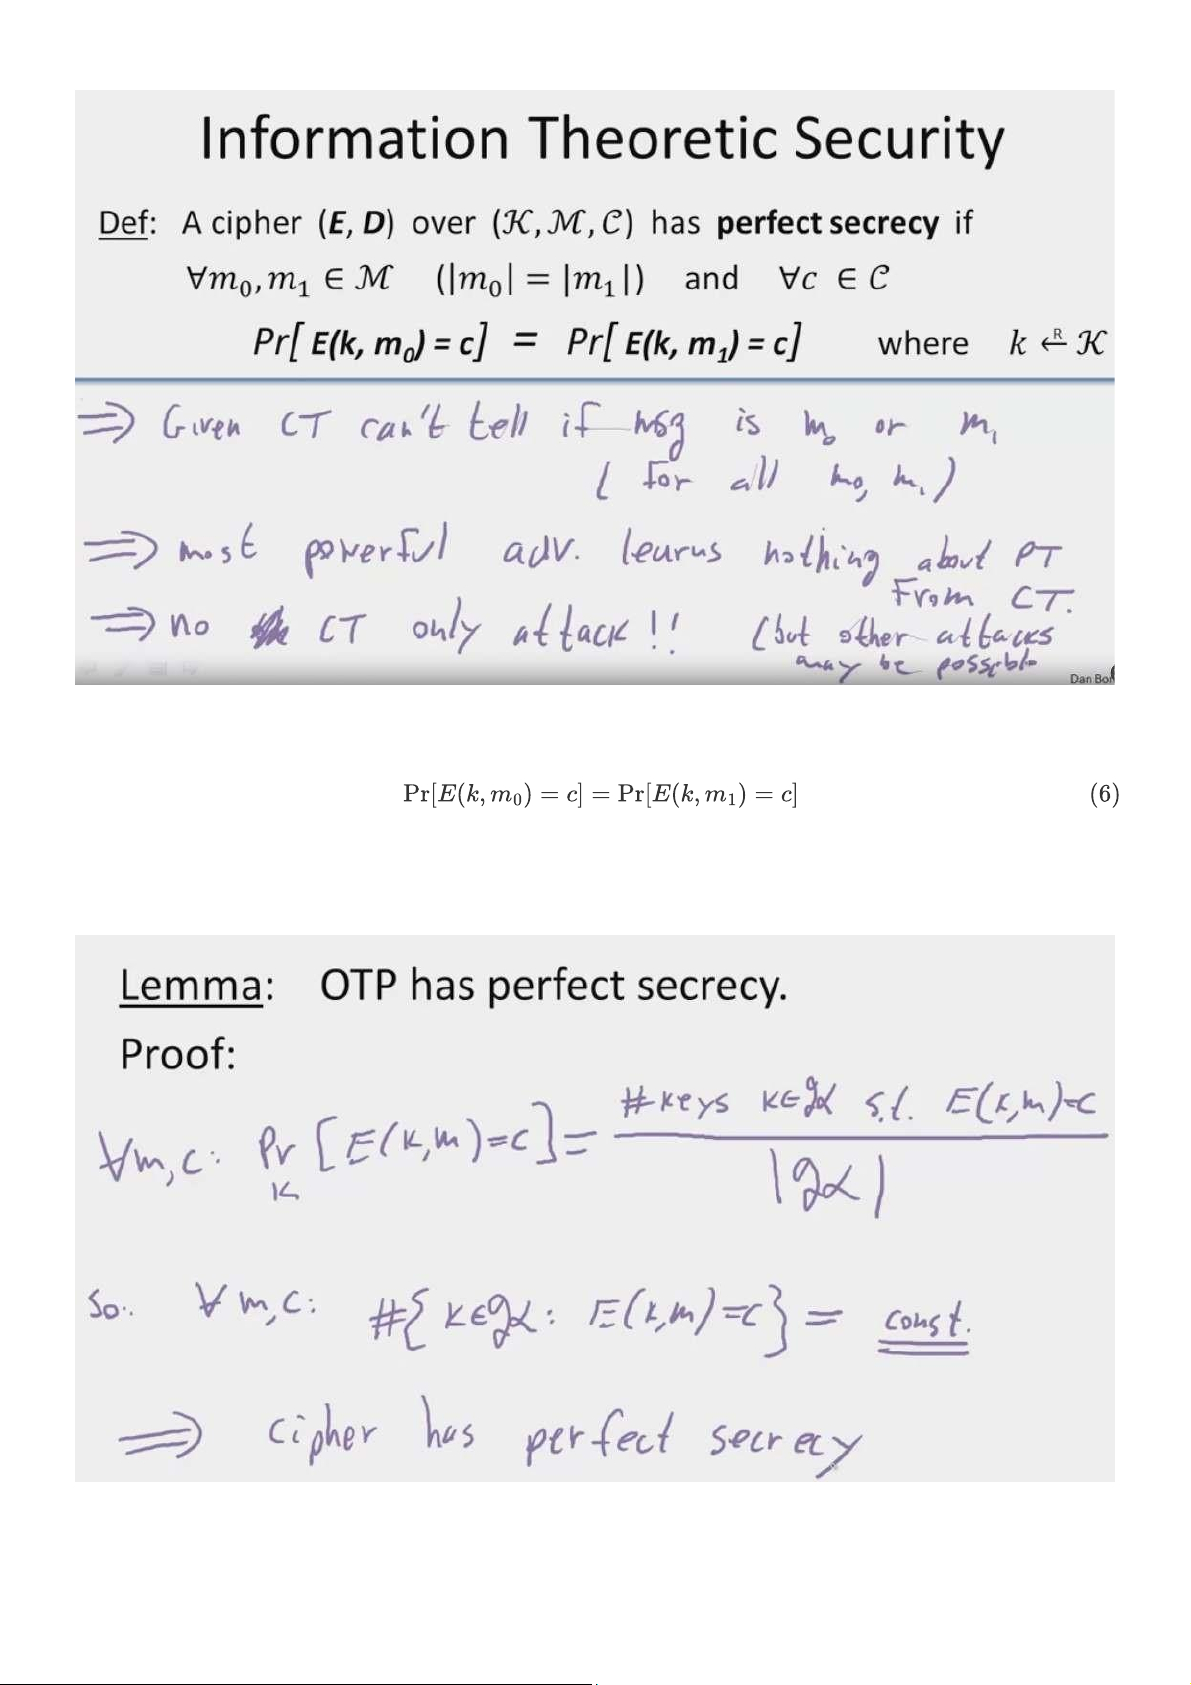 Information Theoretic Security
Def: A cipher (E, D) over (𝒦, ℳ, 𝒞) has perfect secrecy if
∀m₀, m₁ ∈ ℳ (|m₀| = |m₁|) and ∀c ∈ 𝒞
Pr[ E(k, m₀) = c] = Pr[ E(k, m₁) = c] where k ←ᴿ 𝒦
⇒ Given CT can't tell if msg is m₀ or m₁
( for all m₀, m₁ )
⇒ most powerful adv. learns nothing about PT
From CT.
⇒ no CT only attack !! (but other attacks
may be possible
Dan Bon
Pr[E(k, m₀) = c] = Pr[E(k, m₁) = c] (6)
Lemma: OTP has perfect secrecy.
Proof:
∀m,c: Pr [E(k,m)=c] = #keys k∈𝒦 s.t. E(k,m)=c
k |𝒦|
So: ∀ m,c: #{ k∈𝒦 : E(k,m)=c } = const.
⇒ cipher has perfect secrecy